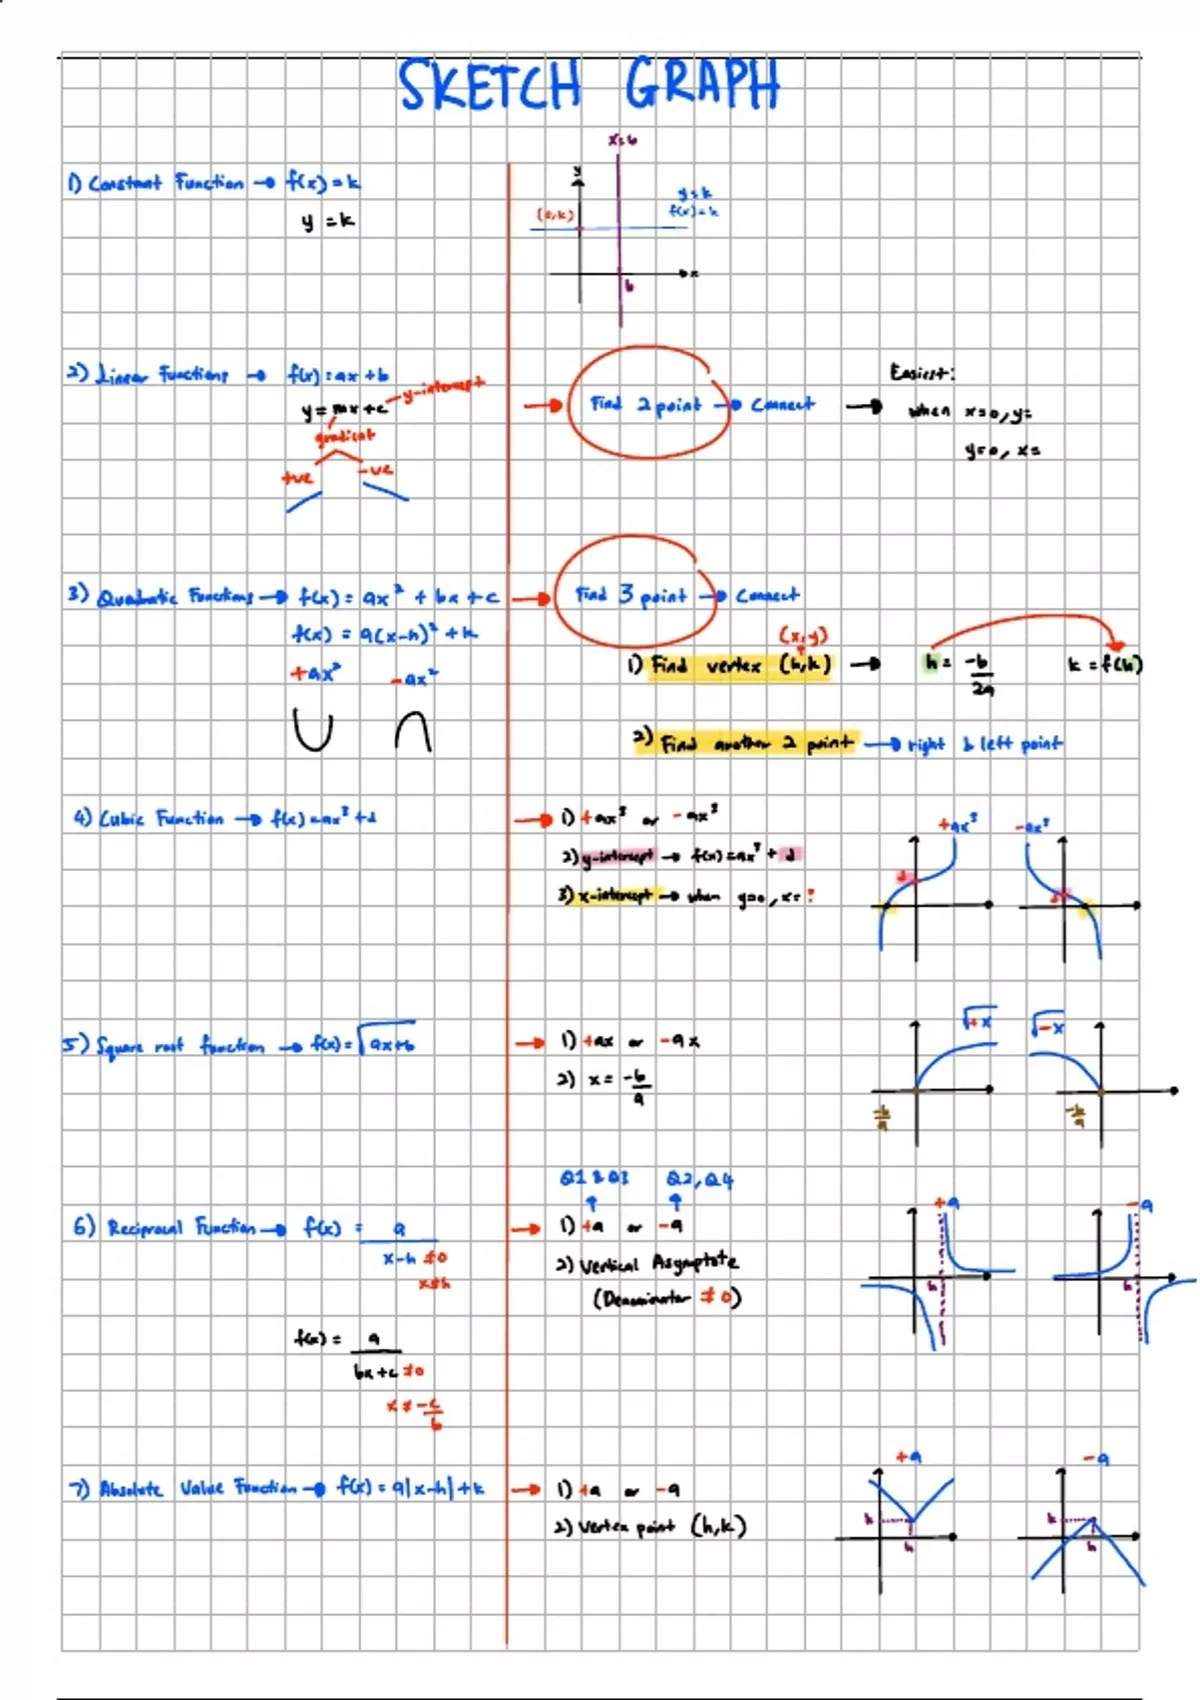 SKETCH GRAPH
1) Constant Function → f(x) = k
y = k
x = b
y
(0,k)
y = k
f(x) = k
x
b
2) Linear Functions → f(x) = ax + b
y = mx + c
y-intercept
gradient
+ve
-ve
Find 2 point → Connect →
Easiest:
when x=0, y=
y=0, x=
3) Quadratic Functions → f(x) = ax² + bx + c
f(x) = a(x-h)² + k
+ax²
-ax²
Find 3 point → Connect
(x,y)
1) Find vertex (h,k) → h = -b/2a k = f(h)
2) Find another 2 point → right & left point
4) Cubic Function → f(x) = ax³ + d
1) +ax³ or -ax³
2) y-intercept → f(x) = ax³ + d
3) x-intercept → when y=0, x= ?
+ax³
-ax³
d
d
5) Square root function → f(x) = √ax+b
1) +ax or -ax
2) x = -b/a
√+x
√-x
-b/a
-b/a
6) Reciprocal Function → f(x) = a/x-h ≠0
x≠h
f(x) = a/bx+c ≠0
x ≠ -c/b
Q1 & Q3 Q2, Q4
1) +a or -a
2) Vertical Asymptote
(Denominator ≠ 0)
+a
-a
h
h
7) Absolute Value Function → f(x) = a|x-h| + k
1) +a or -a
2) Vertex point (h,k)
+a
-a
k
h
k
h